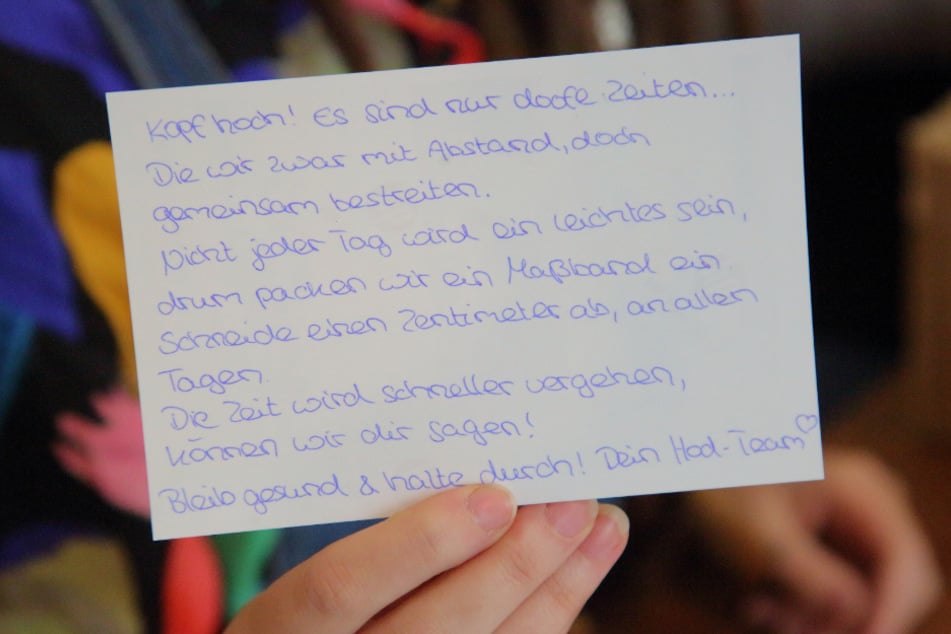 Kopf hoch! Es sind nur doofe Zeiten...
Die wir zwar mit Abstand, doch
gemeinsam bestreiten.
Nicht jeder Tag wird ein leichtes sein,
drum packen wir ein Maßband ein.
Schneide einen Zentimeter ab, an allen
Tagen.
Die Zeit wird schneller vergehen,
können wir dir sagen!
Bleib gesund & halte durch! Dein Hod-Team ♡